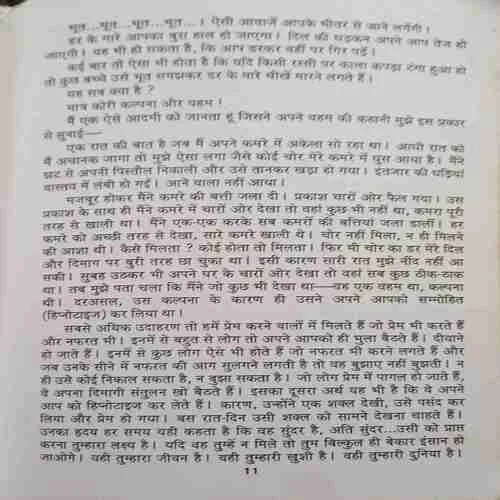 भूत...भूत...भूत...भूत...। ऐसी आवाजें आपके भीतर से आने लगेंगी।
डर के मारे आपका बुरा हाल हो जाएगा। दिल की धड़कन अपने आप तेज हो
जाएगी। यह भी हो सकता है, कि आप डरकर वहीं पर गिर पड़ें।
कई बार तो ऐसा भी होता है कि यदि किसी रस्सी पर काला कपड़ा टंगा हुआ हो
तो कुछ बच्चे उसे भूत समझकर डर के मारे चीखें मारने लगते हैं।
यह सब क्या है ?
मात्र कोरी कल्पना और वहम।
मैं एक ऐसे आदमी को जानता हूं जिसने अपने वहम की कहानी मुझे इस प्रकार
से सुनाई—
एक रात की बात है जब मैं अपने कमरे में अकेला सो रहा था। आधी रात को
मैं अचानक जागा तो मुझे ऐसा लगा जैसे कोई चोर मेरे कमरे में घुस आया है। मैंने
झट से अपनी पिस्तौल निकाली और उसे तानकर खड़ा हो गया। इंतजार की घड़ियां
वास्तव में लंबी हो गईं। आने वाला नहीं आया।
मजबूर होकर मैंने कमरे की बत्ती जला दी। प्रकाश चारों ओर फैल गया। उस
प्रकाश के साथ ही मैंने कमरे में चारों ओर देखा तो वहां कुछ भी नहीं था, कमरा पूरी
तरह से खाली था। मैंने एक-एक करके सब कमरों की बत्तियां जला डालीं। हर
कमरे को अच्छी तरह से देखा, सारे कमरे खाली थे। चोर नहीं मिला, न ही मिलने
की आशा थी। कैसे मिलता ? कोई होता तो मिलता। फिर भी चोर का डर मेरे दिल
और दिमाग पर बुरी तरह छा चुका था। इसी कारण सारी रात मुझे नींद नहीं आ
सकी। सुबह उठकर भी अपने घर के चारों ओर देखा तो वहां सब कुछ ठीक-ठाक
था। तब मुझे पता चला कि मैंने जो कुछ भी देखा था—वह एक वहम था, कल्पना
थी। दरअसल, उस कल्पना के कारण ही उसने अपने आपको सम्मोहित
(हिप्नोटाइज) कर लिया था।
सबसे अधिक उदाहरण तो हमें प्रेम करने वालों में मिलते हैं जो प्रेम भी करते हैं
और नफरत भी। इनमें से बहुत से लोग तो अपने आपको ही भुला बैठते हैं। दीवाने
हो जाते हैं। इनमें से कुछ लोग ऐसे भी होते हैं जो नफरत भी करने लगते हैं और
जब उनके सीने में नफरत की आग सुलगने लगती है तो वह बुझाए नहीं बुझती। न
ही उसे कोई निकाल सकता है, न बुझा सकता है। जो लोग प्रेम में पागल हो जाते हैं,
वे अपना दिमागी संतुलन खो बैठते हैं। इसका दूसरा अर्थ यह भी है कि वे अपने
आप को हिप्नोटाइज कर लेते हैं। कारण, उन्होंने एक शक्ल देखी, उसे पसंद कर
लिया और प्रेम हो गया। बस रात-दिन उसी शक्ल को सामने देखना चाहते हैं।
उनका हृदय हर समय यही कहता है कि वह सुंदर है, अति सुंदर...उसी को प्राप्त
करना तुम्हारा लक्ष्य है। यदि वह तुम्हें न मिले तो तुम बिल्कुल ही बेकार इंसान हो
जाओगे। यही तुम्हारा जीवन है। वही तुम्हारी खुशी है। वही तुम्हारी दुनिया है।
11